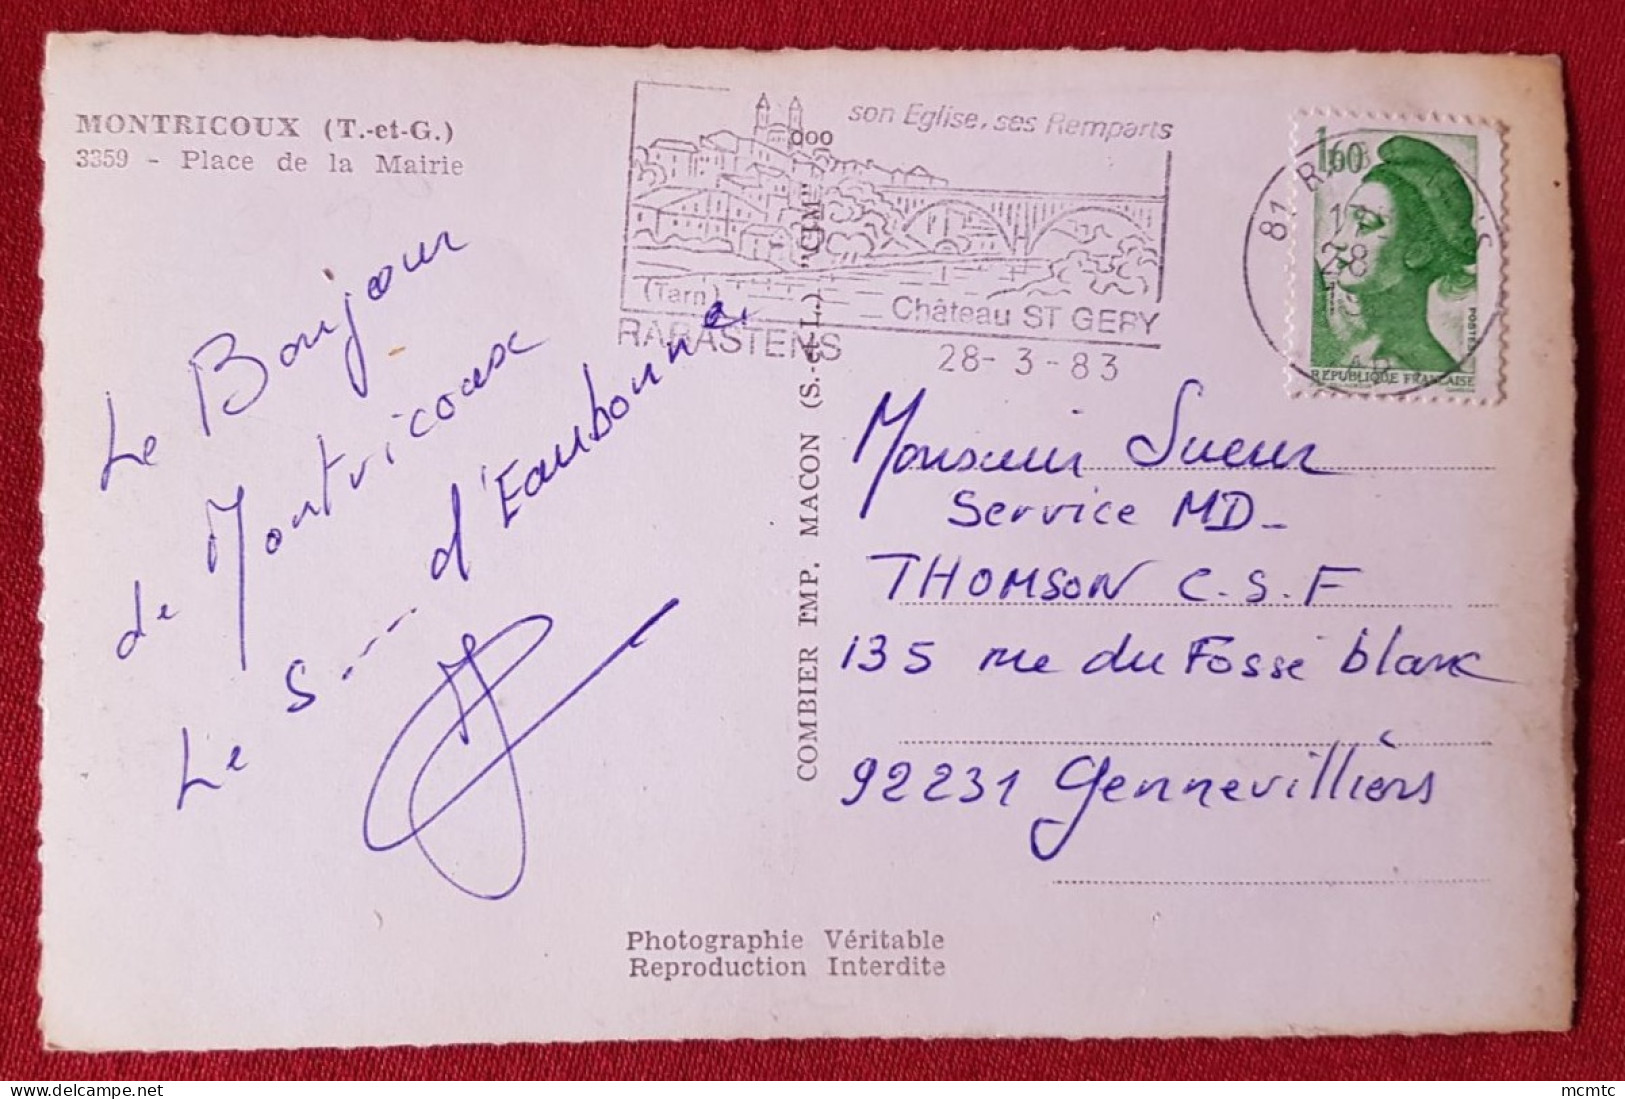 MONTRICOUX (T.-et-G.)
3359 - Place de la Mairie
son Eglise, ses Remparts
(Tarn)
Château ST GERY
RABASTENS
28-3-83
81 R
17
28
1,60
POSTES
REPUBLIQUE FRANÇAISE
Le Bonjour
de Montricoux
Le S---- d'Eaubonne
COMBIER IMP. MACON (S.-et-L.) "CIM"
Monsieur Sueur
Service MD-
THOMSON C.S.F
135 rue du Fossé blanc
92231 Gennevilliers
Photographie Véritable
Reproduction Interdite
mcmtc